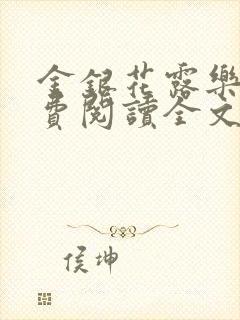 金銀花露樂
費閱讀全文
侯坤